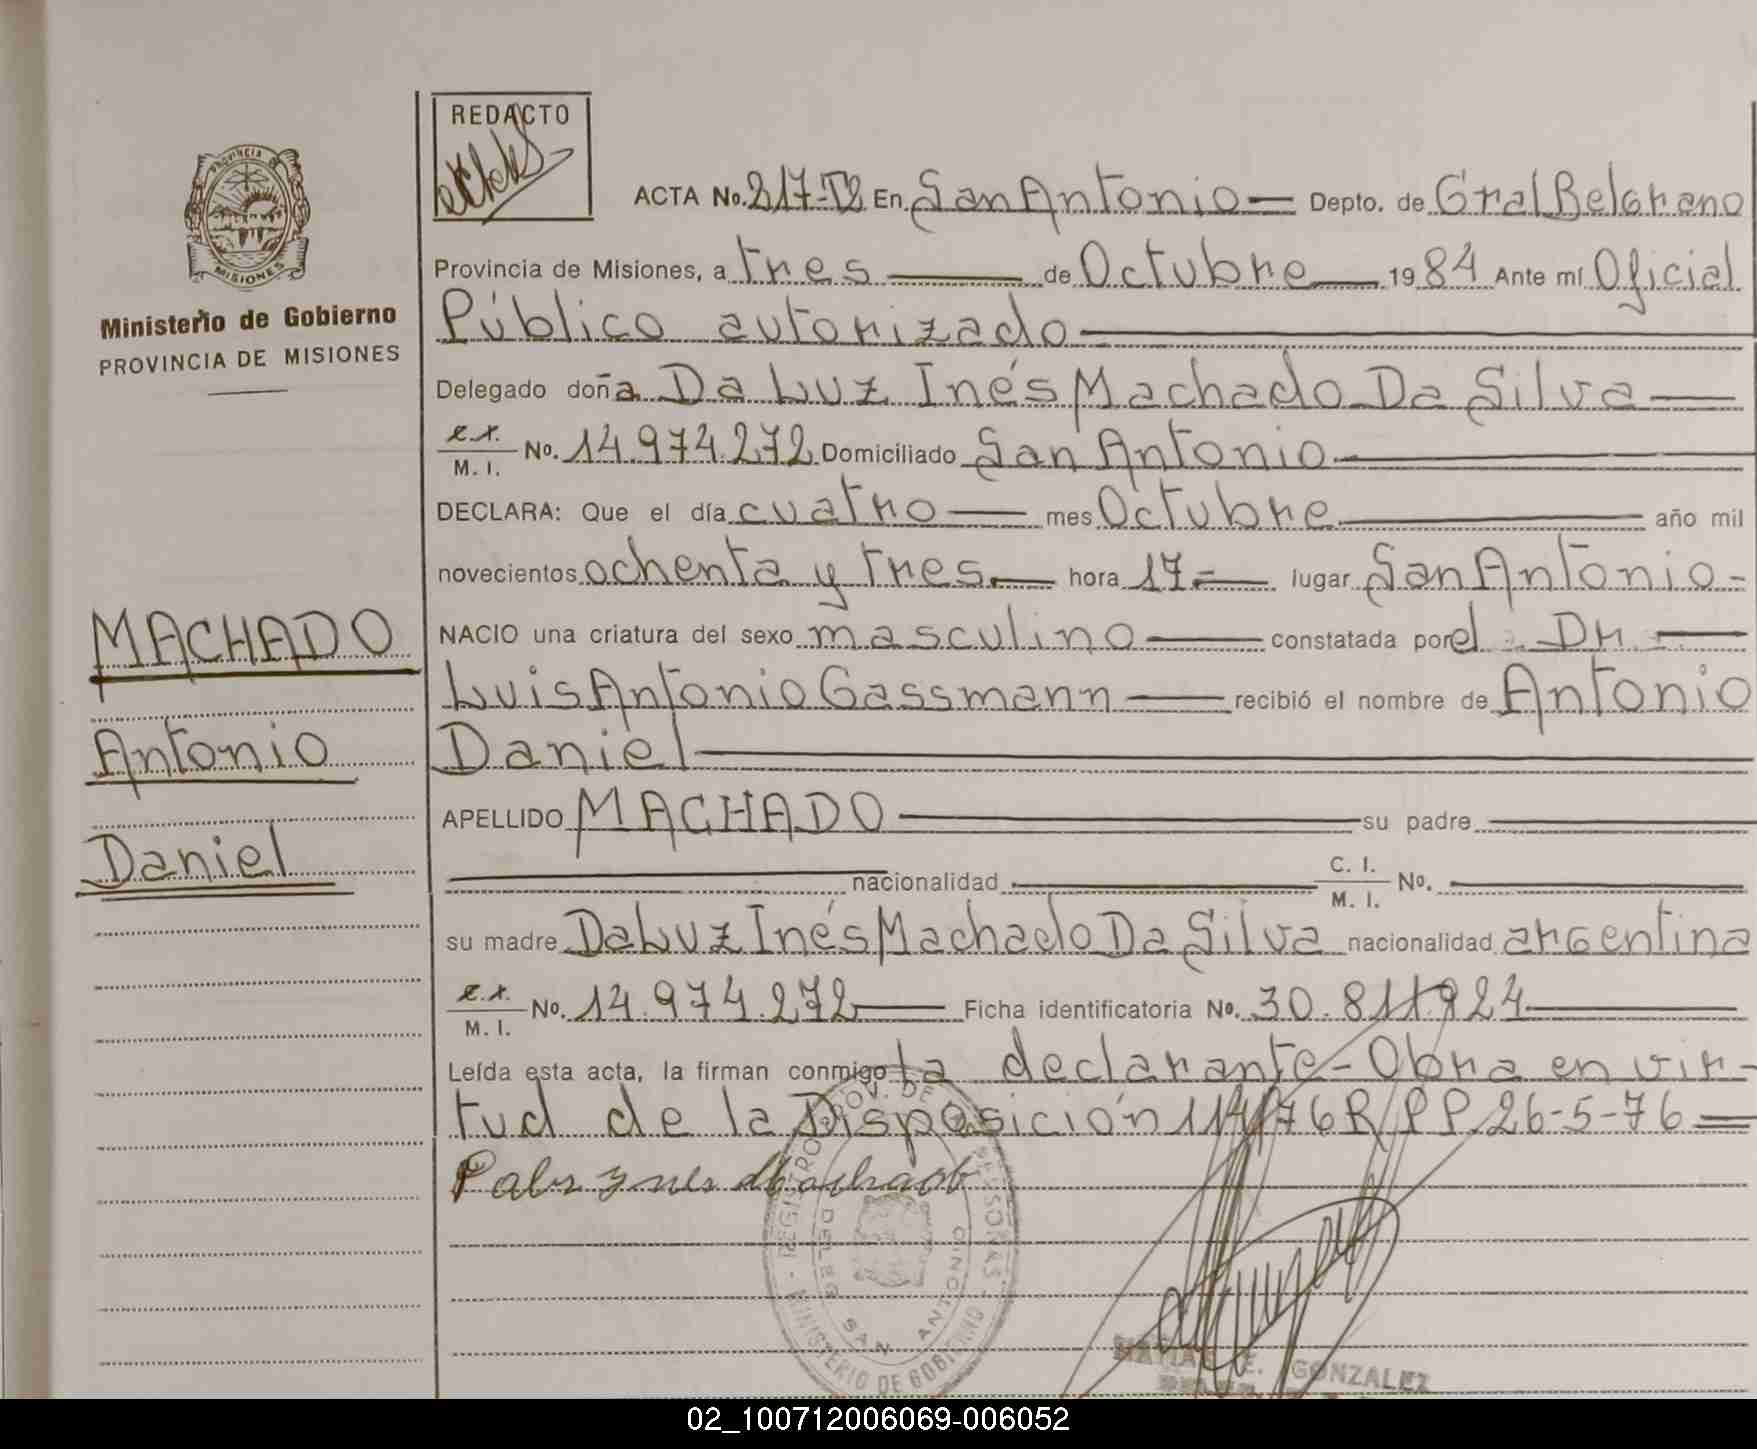 REDACTO
PROVINCIA DE
MISIONES
Ministerio de Gobierno
PROVINCIA DE MISIONES
MACHADO
Antonio
Daniel
ACTA No. 217-T2 En San Antonio — Depto. de Gral Belgrano
Provincia de Misiones, a tres — de Octubre — 1984 Ante mí Oficial
Público autorizado —
Delegado doña Da Luz Inés Machado Da Silva —
M. I. No. 14.974.272 Domiciliado San Antonio —
DECLARA: Que el día cuatro — mes Octubre — año mil
novecientos ochenta y tres — hora 17 = lugar San Antonio -
NACIO una criatura del sexo masculino — constatada por el Dr. —
Luis Antonio Gassmann — recibió el nombre de Antonio
Daniel —
APELLIDO MACHADO — su padre —
— nacionalidad — C. I. M. I. No. —
su madre Da Luz Inés Machado Da Silva nacionalidad argentina
M. I. No. 14.974.272 — Ficha identificatoria No. 30.811.924 —
Leída esta acta, la firman conmigo la declarante - Obra en vir-
tud de la Disposición 114/76 R.P.P. 26-5-76 =
REGISTRO PROV. DE LAS PERSONAS
MINISTERIO DE GOBIERNO
SAN ANTONIO
E. GONZALEZ
02_100712006069-006052